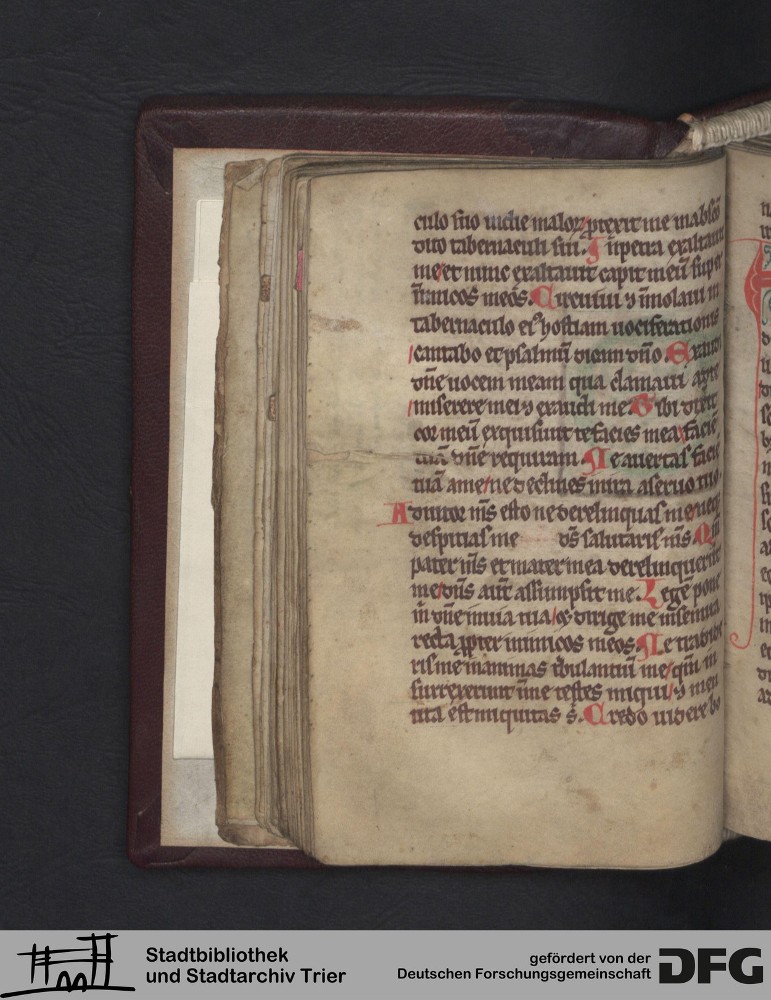 culo suo in die maloꝝ ꝓtexit me in absco
dito tabernaculi sui. In petra exaltauit
me et nunc exaltauit caput meū sup
inimicos meos. Circuiui ⁊ īmolaui in
tabernaculo eiꝰ hostiam uociferationis
cantabo et psalmū dicam dn̄o Exaudi
dn̄e uocem meam qua clamaui ad te
miserere mei ⁊ exaudi me Tibi dixit
cor meū exquisiuit te facies mea faciē
tuā dn̄e requiram. Ne auertas faciē
tuā a me ne declines in ira a seruo tuo.
Adiutor ms̄ esto ne derelinquas me neqꝫ
despicias me ds̄ salutaris ms̄ Qm̄
pater ms̄ et mater mea dereliquerūt
me dn̄s aūt assumpsit me. Legē pone
m̄ dn̄e in uia tua ⁊ dirige me in semita
recta ꝓpter inimicos meos. Ne tradide
ris me in animas tbulantiū me qm̄ in
surrexerunt in me testes iniqui ⁊ men
tita est iniquitas s̄. Credo uidere bo
Stadtbibliothek
und Stadtarchiv Trier
gefördert von der
Deutschen Forschungsgemeinschaft
DFG